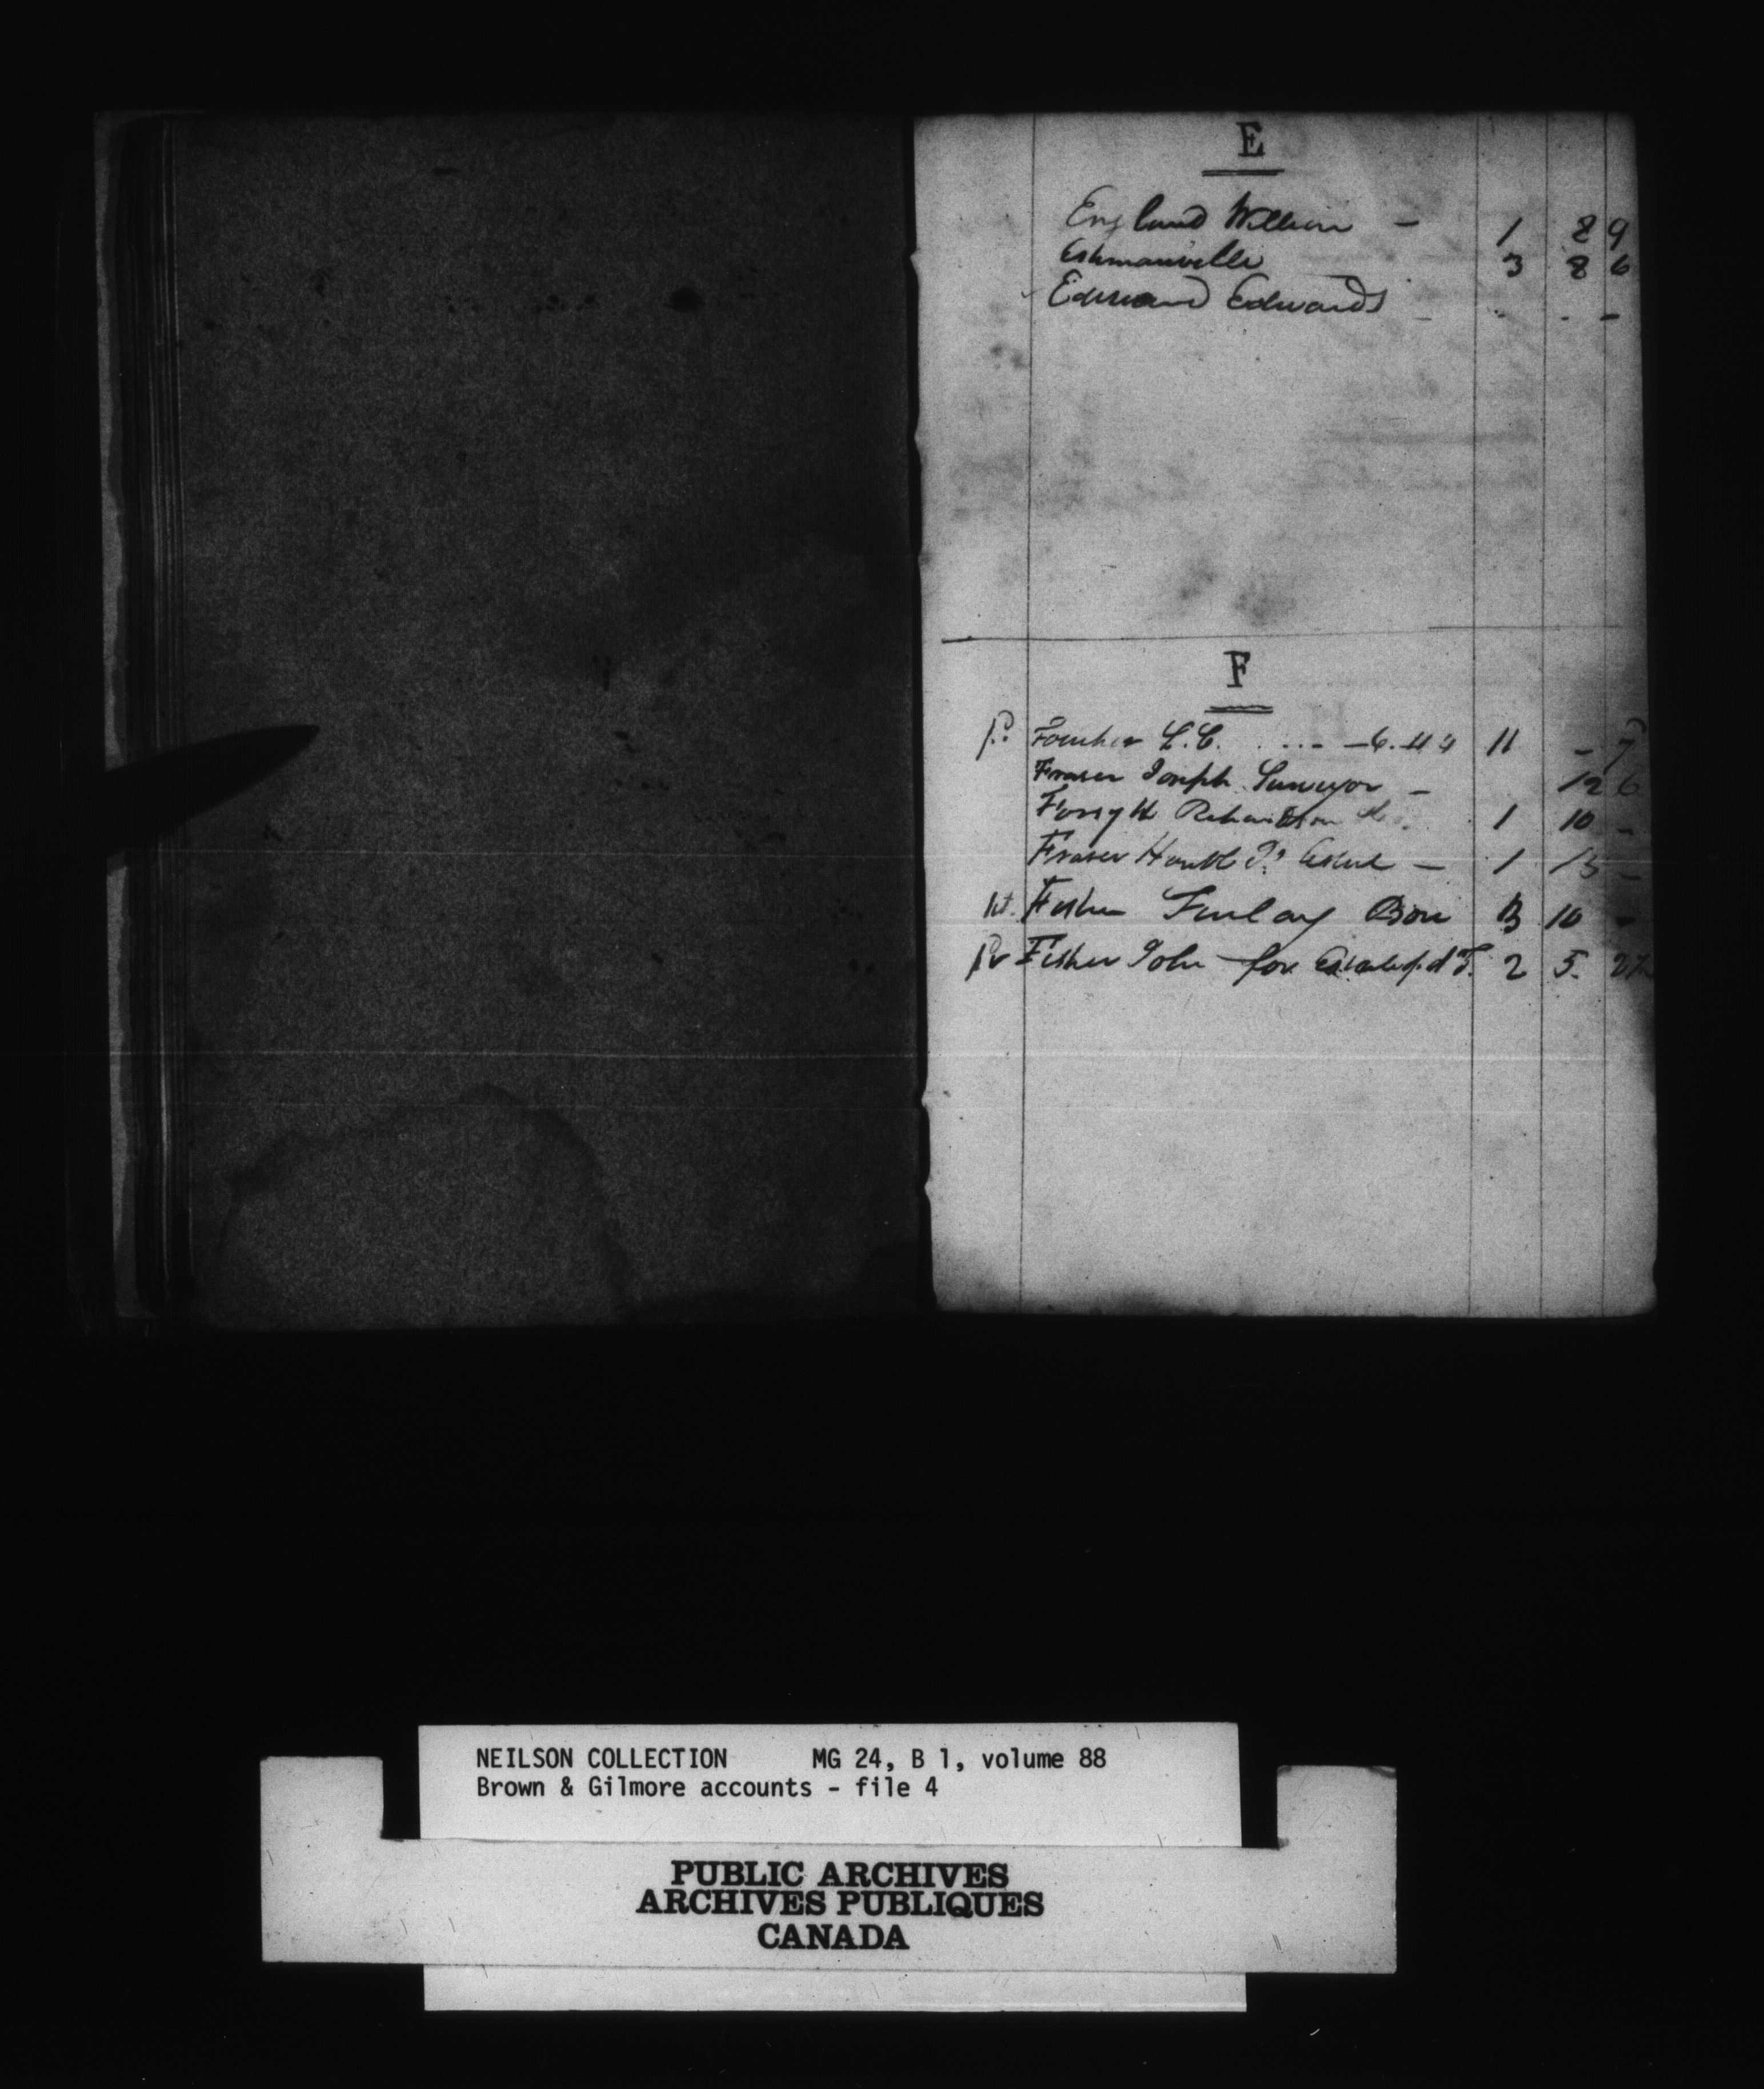 E
England William - 1 8 9
Eshmanville 3 8 6
Edward Edwards - - - -
F
Foucher L. C. 11 - 7
Fraser Joseph Surveyor - 12 6
Forsyth Richardson 1 10 -
Fraser 1 13 -
Fisher Finlay 10 -
Fisher John for 2 5
NEILSON COLLECTION MG 24, B 1, volume 88
Brown & Gilmore accounts - file 4
PUBLIC ARCHIVES
ARCHIVES PUBLIQUES
CANADA